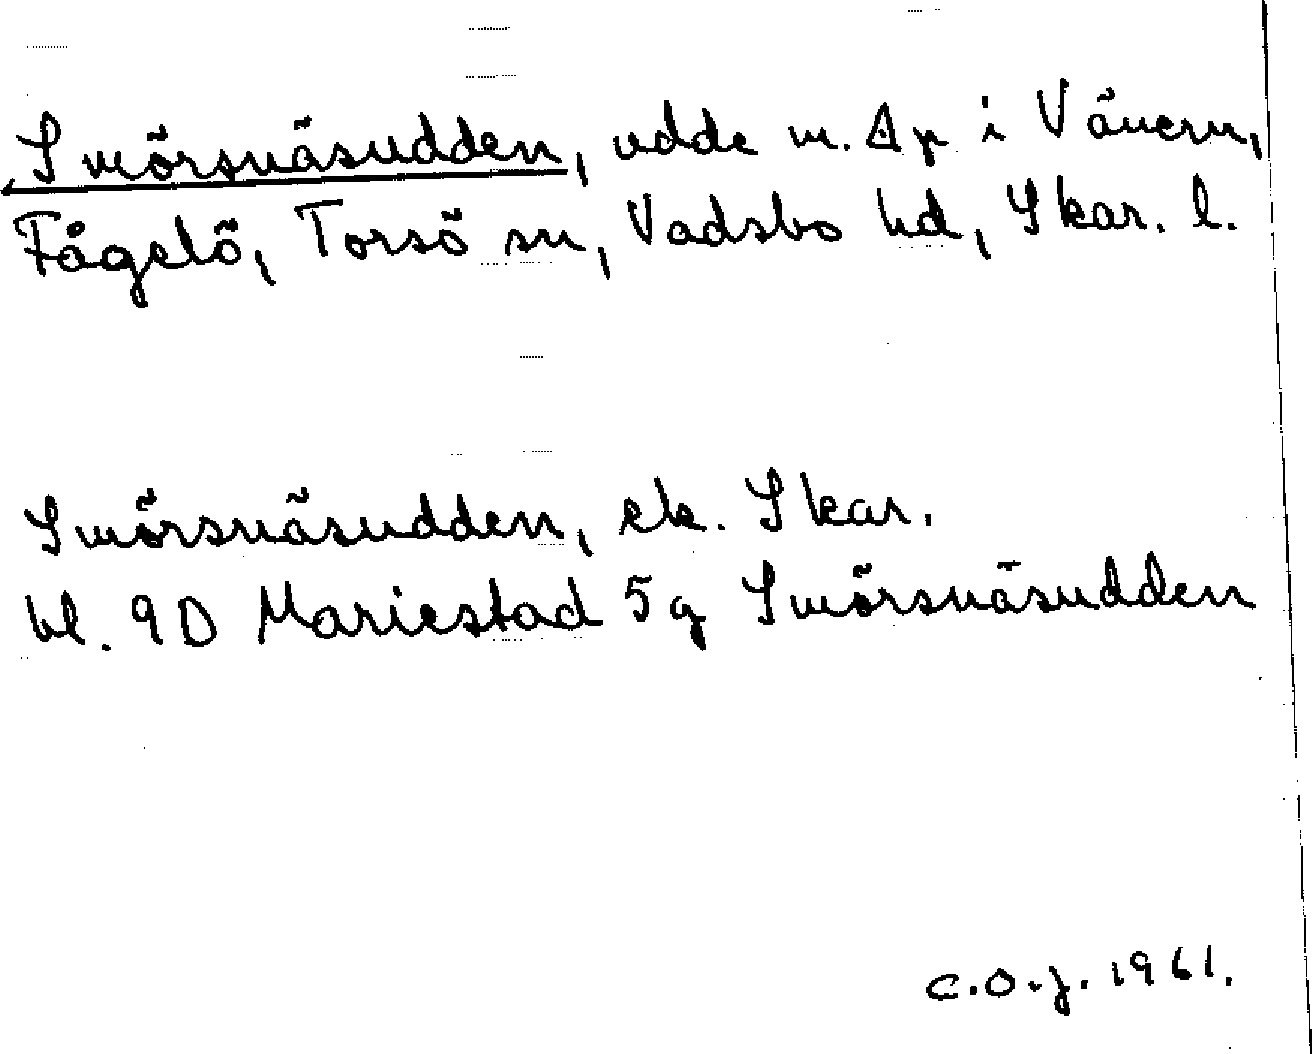 Smörsnäsudden, udde m. Δp i Vänern,
Fågelö, Torsö sn, Vadsbo hd, Skar. l.
Smörsnäsudden, ek. Skar.
bl. 9D Mariestad 5g Smörsnäsudden
C.O.J. 1961.